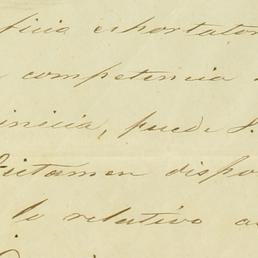 ficia exhortator
competencia
inicia, puede S.
dictamen dispo
lo relativo a